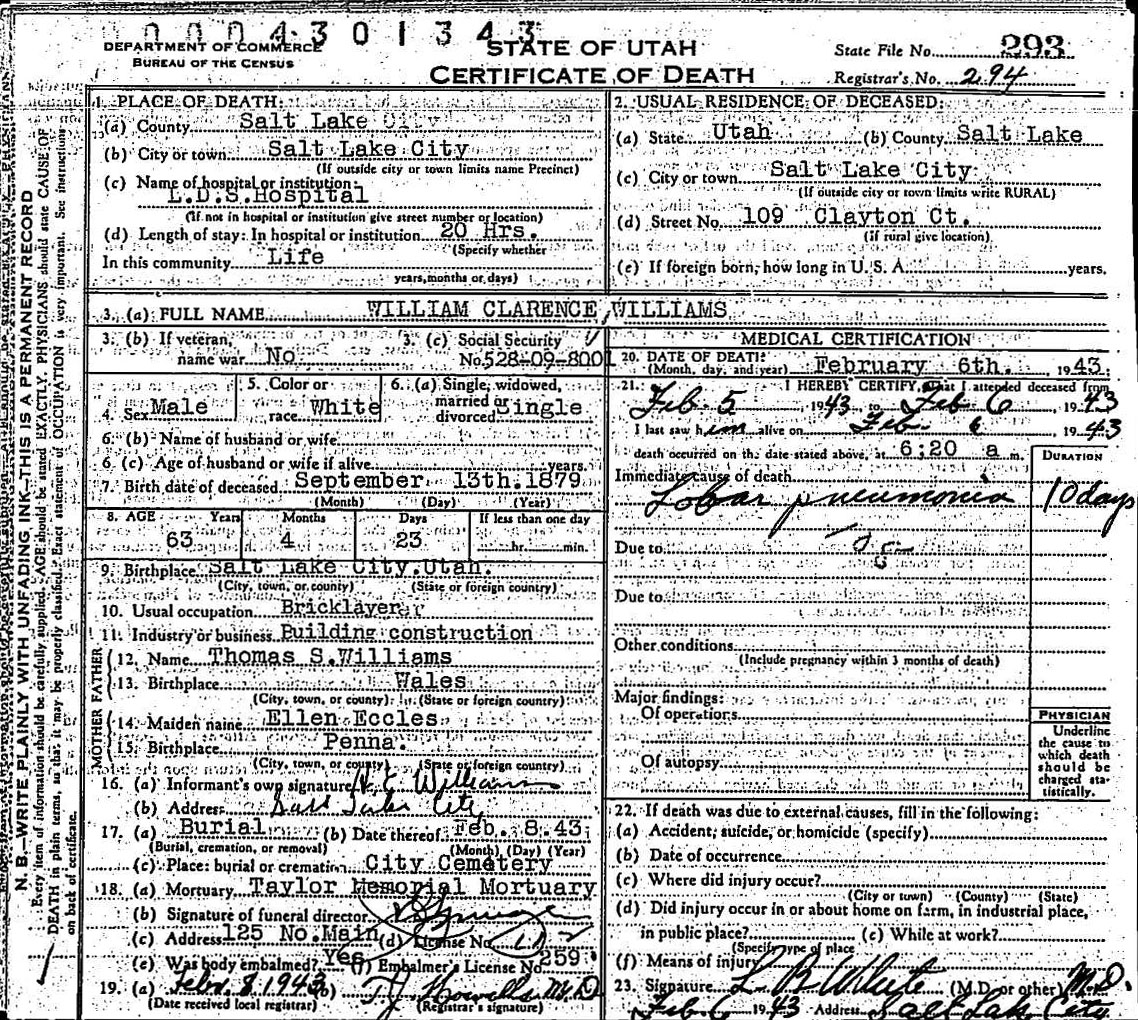 0004301343
DEPARTMENT OF COMMERCE
BUREAU OF THE CENSUS
STATE OF UTAH
CERTIFICATE OF DEATH
State File No. 293
Registrar's No. 294
N. B.—WRITE PLAINLY WITH UNFADING INK—THIS IS A PERMANENT RECORD
Every item of information should be carefully supplied. AGE should be stated EXACTLY. PHYSICIANS should state CAUSE OF
DEATH in plain terms, so that it may be properly classified. Exact statement of OCCUPATION is very important. See instructions
on back of certificate.
1. PLACE OF DEATH:
(a) County Salt Lake City
(b) City or town Salt Lake City
(If outside city or town limits name Precinct)
(c) Name of hospital or institution:
L.D.S.Hospital
(If not in hospital or institution give street number or location)
(d) Length of stay: In hospital or institution 20 Hrs.
(Specify whether
In this community Life
years, months or days)
2. USUAL RESIDENCE OF DECEASED:
(a) State Utah (b) County Salt Lake
(c) City or town Salt Lake City
(If outside city or town limits write RURAL)
(d) Street No. 109 Clayton Ct.
(If rural give location)
(e) If foreign born, how long in U. S. A. years.
3. (a) FULL NAME WILLIAM CLARENCE WILLIAMS
3. (b) If veteran, name war No
3. (c) Social Security No. 528-09-8001
4. Sex Male
5. Color or race White
6. (a) Single, widowed, married or divorced Single
6. (b) Name of husband or wife
6. (c) Age of husband or wife if alive years.
7. Birth date of deceased September 13th.1879
(Month) (Day) (Year)
8. AGE Years Months Days If less than one day
63 4 23 hr. min.
9. Birthplace Salt Lake City.Utah.
(City, town, or county) (State or foreign country)
10. Usual occupation Bricklayer
11. Industry or business Building construction
FATHER
12. Name Thomas S.Williams
13. Birthplace Wales
(City, town, or county) (State or foreign country)
MOTHER
14. Maiden name Ellen Eccles
15. Birthplace Penna.
(City, town, or county) (State or foreign country)
16. (a) Informant's own signature Williams
(b) Address Salt Lake City
17. (a) Burial (b) Date thereof Feb. 8.43
(Burial, cremation, or removal) (Month) (Day) (Year)
(c) Place: burial or cremation City Cemetery
18. (a) Mortuary Taylor Memorial Mortuary
(b) Signature of funeral director
(c) Address 125 No.Main (d) License No.
(e) Was body embalmed? Yes (f) Embalmer's License No. 259
19. (a) Febr. 8 1943 (b) T.J. Howells M.D
(Date received local registrar) (Registrar's signature)
MEDICAL CERTIFICATION
20. DATE OF DEATH: February 6th. 1943
(Month, day, and year)
21. I HEREBY CERTIFY, that I attended deceased from
Feb. 5 1943 to Feb 6 1943
I last saw him alive on Feb. 6 1943
death occurred on the date stated above, at 6:20 a m.
DURATION
Immediate cause of death
Lobar pneumonia 10 days
Due to
Due to
Other conditions
(Include pregnancy within 3 months of death)
Major findings:
Of operations
Of autopsy
PHYSICIAN
Underline
the cause to
which death
should be
charged sta-
tistically.
22. If death was due to external causes, fill in the following:
(a) Accident, suicide, or homicide (specify)
(b) Date of occurrence
(c) Where did injury occur?
(City or town) (County) (State)
(d) Did injury occur in or about home on farm, in industrial place,
in public place? (e) While at work?
(Specify type of place
(f) Means of injury
23. Signature L B White (M.D. or other) M.D.
Feb 6 1943 Address Salt Lake City